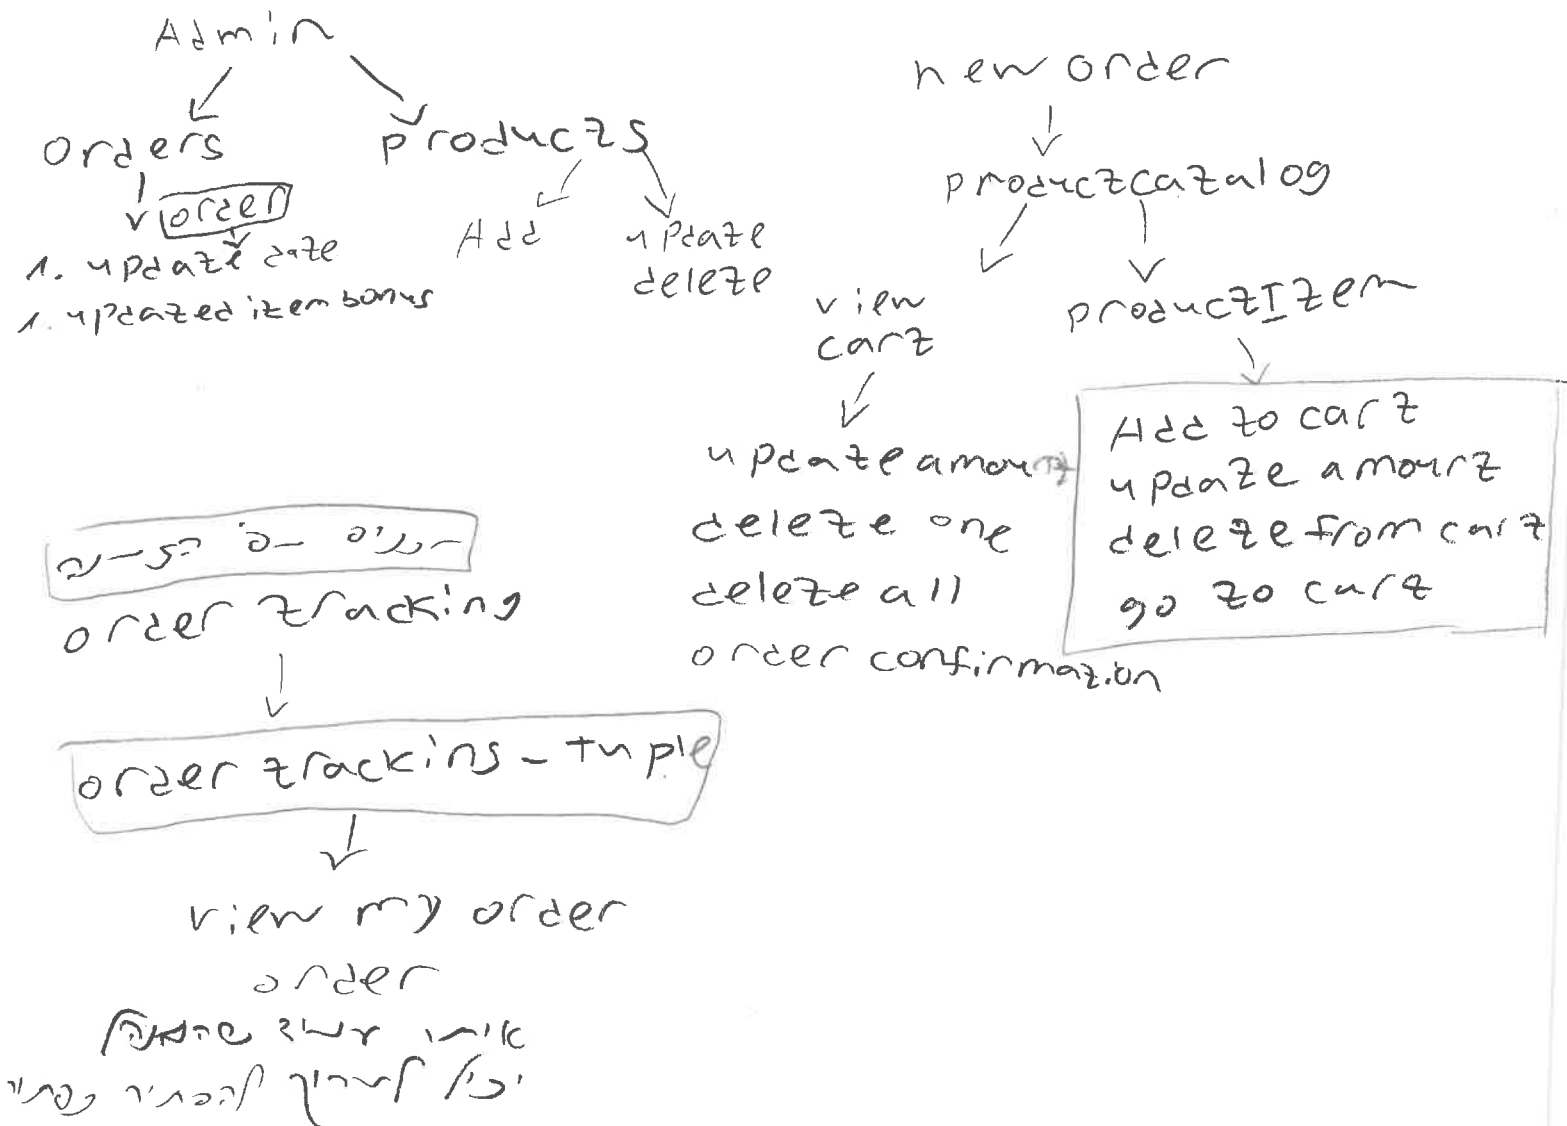 Admin
orders
products
order
1. update date
1. updated item bonus
Add
update
delete
new order
productcatalog
view
cart
productItem
update amount
delete one
delete all
order confirmation
Add to cart
update amount
delete from cart
go to cart
order tracking
order tracking - tuple
view my order
order
אותו
שהמנהל
יכול לערוך להסתיר כפתור